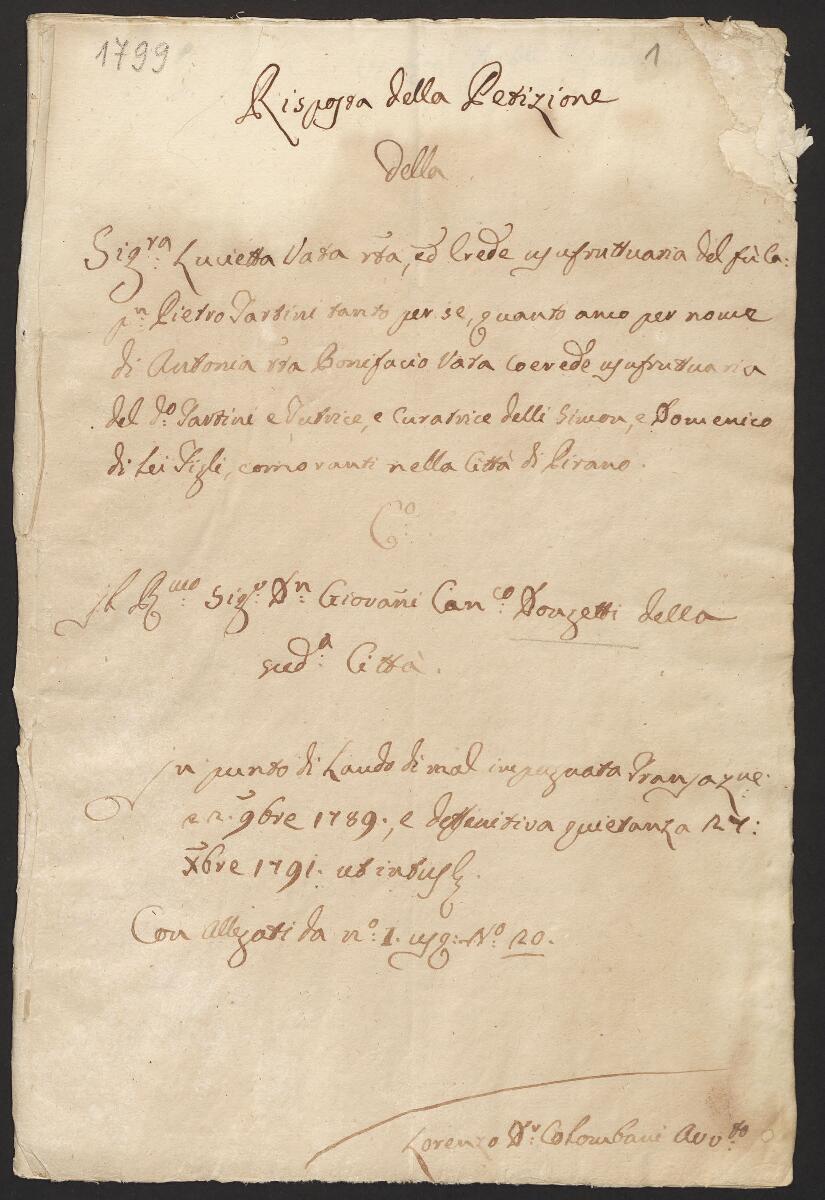 1799 1
Risposta della Petizione
della
Sig.ra Lucietta Vata rta, ed Erede usufruttuaria del fù Ca:
pn Pietro Tartini tanto per se, quanto anco per nome
di Antonia rta Bonifacio Vata Coerede usufruttuaria
del do. Tartini e Tutrice, e Curatrice delli Simon, e Domenico
di Lei Figli, comoranti nella Città di Pirano.
Co.
Il Rmo Sigr. Dn. Giovañi Canco. Donzetti della
suda. Città.
In punto di Laudo di mal impugnata Transazne.
2. 9bre 1789., e deffinitiva quietanza 27:
Xbre 1791. ut intus
Con Allegati da no: 1. usq: No: 20.
Lorenzo Dr. Colombani Avvto